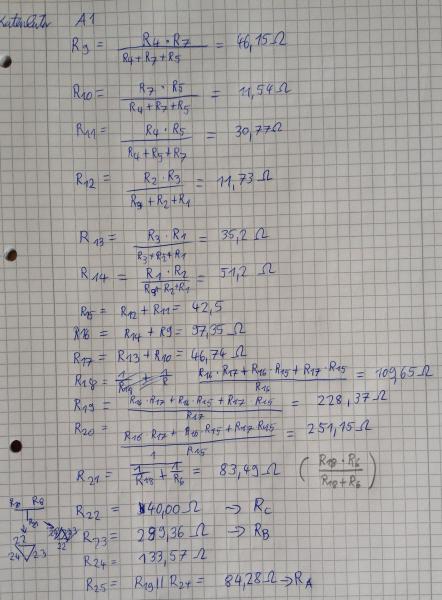 A1
R9 = R4 · R7 / R4 + R7 + R5 = 46,15 Ω
R10 = R7 · R5 / R4 + R7 + R5 = 11,54 Ω
R11 = R4 · R5 / R4 + R5 + R7 = 30,77 Ω
R12 = R2 · R3 / R3 + R2 + R1 = 11,73 Ω
R13 = R3 · R1 / R3 + R2 + R1 = 35,2 Ω
R14 = R1 · R2 / R3 + R2 + R1 = 51,2 Ω
R15 = R12 + R11 = 42,5
R16 = R14 + R9 = 97,35 Ω
R17 = R13 + R10 = 46,74 Ω
R18 = R16 · R17 + R16 · R15 + R17 · R15 / R16 = 109,65 Ω
R19 = R16 · R17 + R16 · R15 + R17 R15 / R17 = 228,37 Ω
R20 = R16 R17 + R16 · R15 + R17 R15 / R15 = 251,15 Ω
R21 = 1 / 1/R18 + 1/R6 = 83,49 Ω (R18 · R6 / R18 + R6)
R22 = 40,00 Ω → RC
R23 = 299,36 Ω → RB
R24 = 133,57 Ω
R25 = R19 || R24 = 84,28 Ω → RA
R8
22
24 23